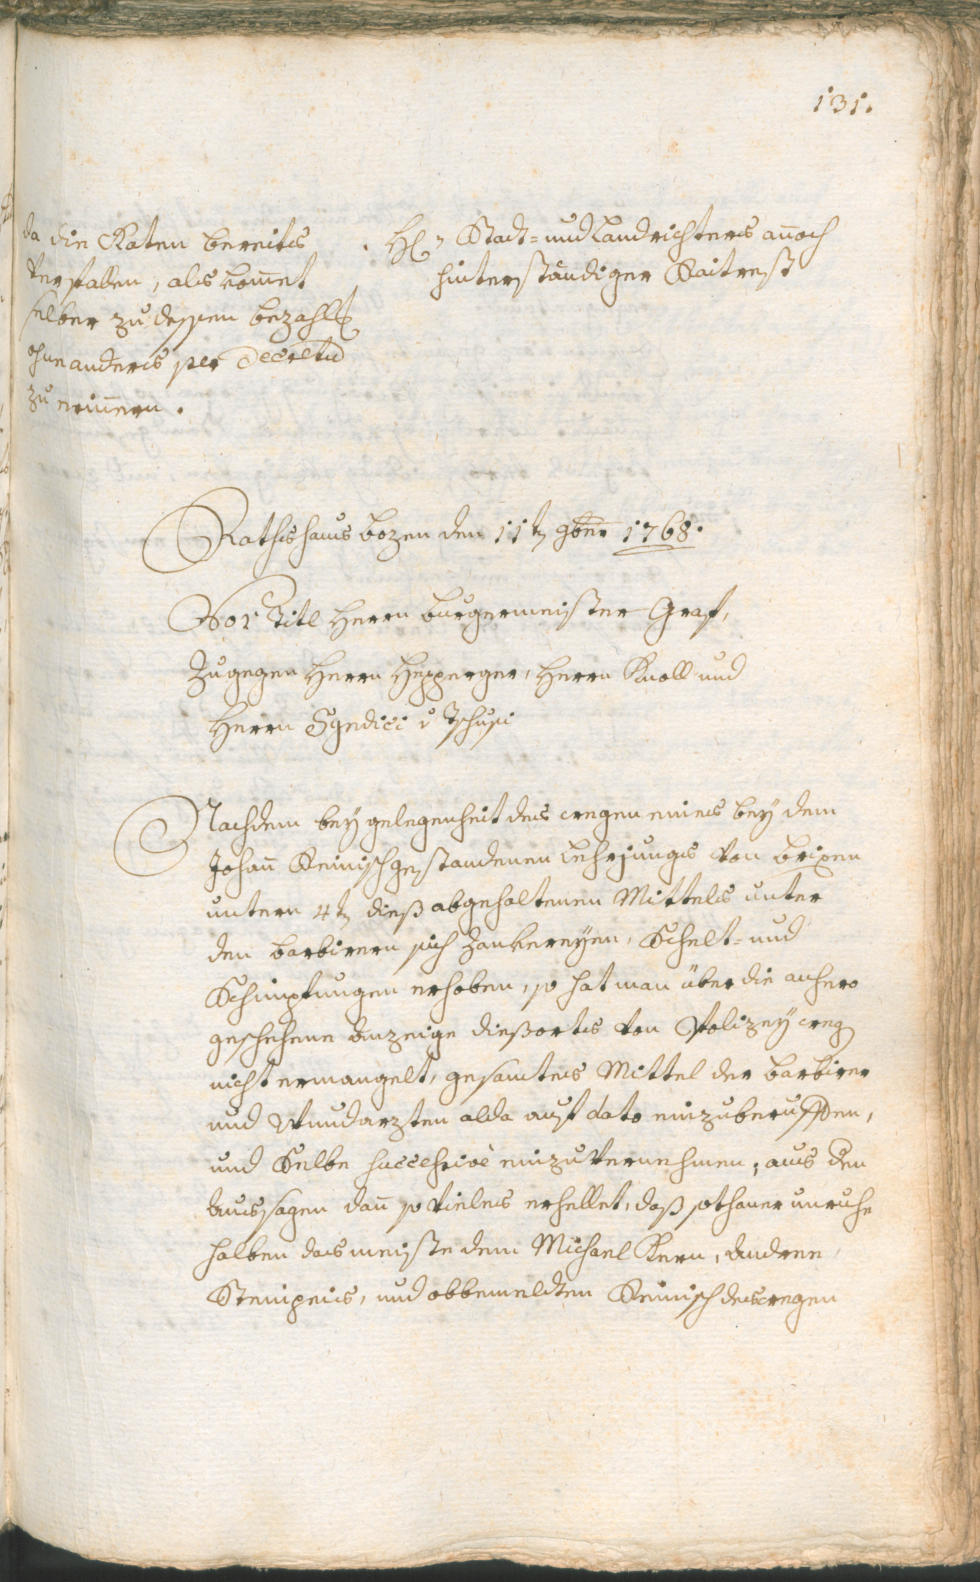 131.
da die Raten bereits
verfallen, als kom̄et
selber zu dessen bezahlg
ohne anders per Decretu
zu erin̄ern.
H: Stadt= und Landrichters an̄och
hinterständiger Raitrest
Rathshaus bozen den 11tn 9ber 1768.
Vor Titl Herrn burgermeister Graf,
Zugegen Herrn Hepperger, Herrn Knoll und
Herrn Syndici v Tschusi
Nachdem bey gelegenheit des wegen eines bey dem
Johan̄ Reinisch gestandenen Lehrjungs von brixen
untern 4tn dieß abgehaltenen Mittels unter
den barbirern sich Zankereyen, Schelt= und
Schimpfungen erhoben, so hat man über die anhero
geschehene Anzeige dießorts von Polizey weg
nicht ermangelt, gesamtes Mittel der barbirer
und Wundarzten alda auf dato einzuberuffen,
und Selbe successive einzuvernehmen, aus den
Aussagen dan̄ so vieles erhellet, daß sothaner unruhe
halben das meiste dem Michael Kern, Andree
und obbemeldten Reinisch deswegen